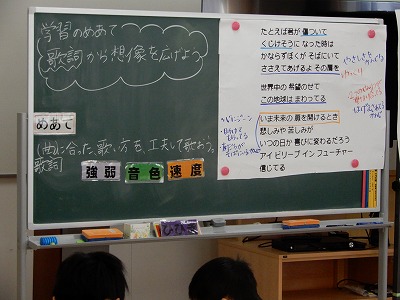 学習のめあて
歌詞から想像を広げよう
めあて
(曲に合った、歌い方を、工夫して歌おう。
歌詞
強弱 音色 速度
たとえば君が 傷ついて
くじけそうに なった時は
かならずぼくが そばにいて
ささえてあげるよ その肩を
世界中の 希望のせて
この地球は まわってる
いま未来の 扉を開けるとき
悲しみや 苦しみが
いつの日か 喜びに変わるだろう
アイ ビリーブ イン フューチャー
信じてる